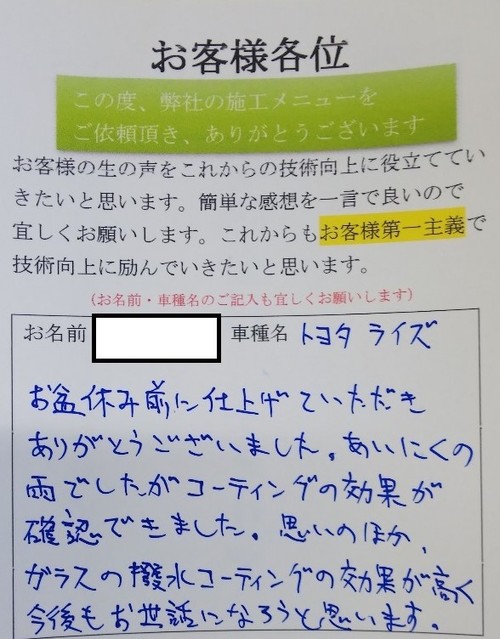 お客様各位
この度、弊社の施工メニューを
ご依頼頂き、ありがとうございます
お客様の生の声をこれからの技術向上に役立ててい
きたいと思います。簡単な感想を一言で良いので
宜しくお願いします。これからもお客様第一主義で
技術向上に励んでいきたいと思います。
(お名前・車種名のご記入も宜しくお願いします)
お名前 車種名 トヨタ ライズ
お盆休み前に仕上げていただき
ありがとうございました。あいにくの
雨でしたがコーティングの効果が
確認できました。思いのほか、
ガラスの撥水コーティングの効果が高く
今後もお世話になろうと思います。